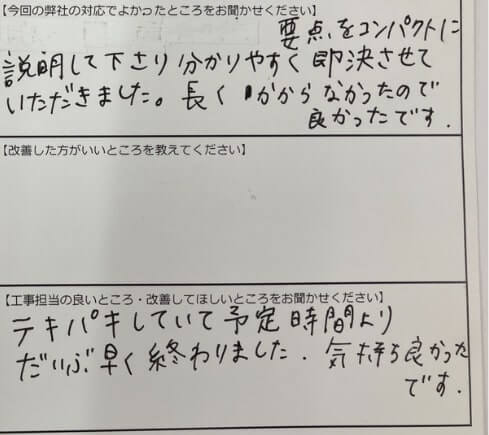 【今回の弊社の対応でよかったところをお聞かせください】
要点をコンパクトに
説明して下さり分かりやすく即決させて
いただきました。長くかからなかったので
良かったです.
【改善した方がいいところを教えてください】
【工事担当の良いところ・改善してほしいところをお聞かせください】
テキパキしていて予定時間より
だいぶ早く終わりました. 気持ち良かった
です.